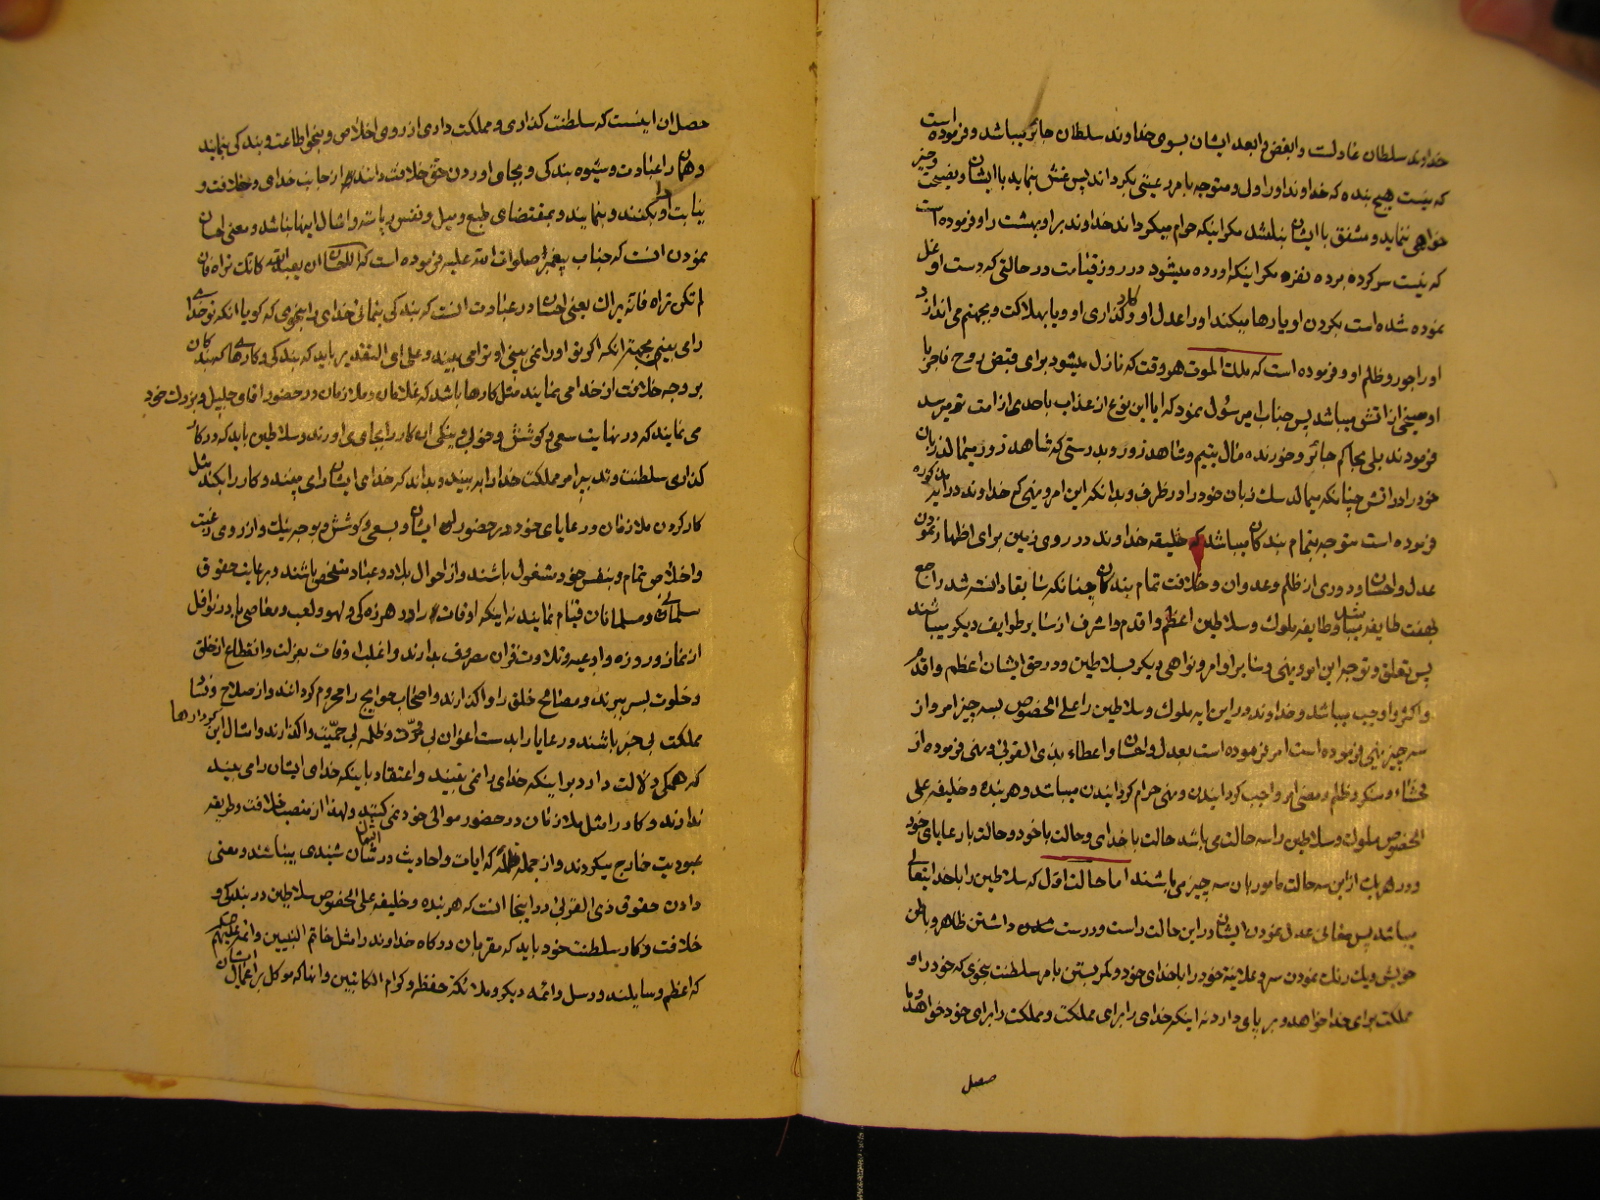 خداوند سلطان عادلست و ابغض و ابعد ایشان بسوی خداوند سلطان جائر میباشد و فرموده است
که نیست هیچ بنده که خداوند او را ولی و متوجه بامر رعیتی بکرداند پس غش نماید با ایشان و نصیحت و خیر
خواهی ننماید و مشفق با ایشان نباشد مکر اینکه حرام میکرداند خداوند بر او بهشت را و فرموده است
که نیست سرکرده بر ده نفره مکر اینکه اورده میشود در روز قیامت در حالتی که دست او غل
نموده شده است بکردن او یا رها میکند او را عدل او و کارکذاری او و یا بهلاکت و بجهنم می اندازد
او را جور و ظلم او و فرموده است که ملک الموت هر وقت که نازل میشود برای قبض روح فاجر با
او سیخی از اتش میباشد پس جناب امیر سؤل نمود که ایا این نوع از عذاب باحدی از امت تو میرسد
فرمودند بلی بحاکم جائر و خورنده مال یتیم و شاهد زور و بدرستی که شاهد زور میمالد زبان
خود را در اتش چنانکه میمالد سك زبان خود را در ظرف و بدانکه این امر و نهی که خداوند در ایه مذکوره
فرموده است متوجه بتمام بندکان میباشد که خلیفه خداوند در روی زمین برای اظهار نمودن
عدل و احسان و دوری از ظلم و عدوان و خلافت تمام بندکان چنانکه سابقا دانسته شد راجع
بهفت طایفه میباشد و طایفه ملوك و سلاطین اعظم و اقدم و اشرف از سایر طوایف دیکر میباشند
پس تعلق و توجه این امر و نهی و سایر اوامر و نواهی دیکر بسلاطین و در حق ایشان اعظم و اقدم
و اکثر و اوجب میباشد و خداوند در این ایه ملوك و سلاطین را علی الخصوص بسه چیز امر و از
سه چیز نهی فرموده است امر فرموده است بعدل و احسان و اعطاء بذی القربی و نهی فرموده از
فحشاء و منکر و ظلم و معنی امر واجب کردانیدن و نهی حرام کردانیدن میباشد و هر بنده و خلیفه علی
الخصوص ملوك و سلاطین را سه حالت می باشد حالت با خدای و حالت با خود و حالت با رعایای خود
و در هر یك از این سه حالت مامور بان سه چیز می باشند اما حالت اول که سلاطین را با خدایتعالی
میباشد پس معانی عدل نمودن ایشان در این حالت راست و درست شدن و داشتن ظاهر و باطن
خویش و یك رنك نمودن سر و علانیه خود را با خدای خود و کمر بستن بامر سلطنت بنحوی که خود را و
مملکت برای خدا خواهد و بر پای دارد نه اینکه خدای را برای مملکت و مملکت را برای خود خواهد و ما
حصل
حصل ان اینست که سلطنت کذاری و مملکت داری از روی اخلاص و بنحو اطاعت و بندکی بنمایند
و همان را عبادت و شیوه بندکی و بجای اوردن حق خلافت دانند و از جانب خدای و خلافت و
نیابت او را بکنند و بنمایند و بمقتضای طبع و میل و نفس و ریاست و امثال اینها نباشد و معنی احسان
نمودن انست که جناب پیغمبر صلوات الله علیه فرموده است که الاحسان ان تعبد الله کانك تراه فان
لم تکن تراه فانه یراك یعنی احسان در عبادت انست که بندکی بنمائی خدای را بنحوی که کویا انکه تو خدا
را می بینی بجهة انکه اکر تو او را نمی بینی او تو را می بیند و علی ای التقدیر باید که بندکی و کارهای که بندکان
بر وجه خلافت از خدا می نمایند مثل کارها باشد که غلامان و ملازمان در حضور اقای جلیل و بزرك خود
می نمایند که در نهایت سعی و کوشش و خوبی و نیکی ان کار را بجای می اورند و سلاطین باید که در کار
کذاری سلطنت و تدبیر امر مملکت خدا را به بیند و بداند که خدای ایشان را می بیند و کار را بکند مثل
کار کردن ملازمان و رعایای خود در حضور ایشان و بسعی و کوشش و بوجه نیك و از روی رغبت
و اخلاص تمام و بنفس خود مشغول باشند و از احوال بلاد و عباد متفحص باشند و برعایت حقوق
مسلمانی و مسلمانان قیام نمایند نه اینکه اوقات را در هرزه کی و لهو و لعب و معاصی یا در نوافل
از نماز و روزه و ادعیه و تلاوت قران مصروف بدارند و اغلب اوقات بعزلت و انقطاع از خلق
و خلوت بسر ببرند و مصالح خلق را واکذارند و اصحاب حوایج را محروم کردانند و از صلاح و فساد
مملکت بی خبر باشند و رعایا را بدست اعوان بی مروت و ظلمه بی حمیت واکذارند و امثال این کردارها
که همکی دلالت دارد بر اینکه خدای را نمی بینند و اعتقاد باینکه خدای ایشان را می بیند
ندارند و کار را مثل ملازمان در حضور موالی خود نمی کنند و لهذا از منصب خلافت و طریقه
عبودیت خارج میکردند و از جمله ظلمه که ایات و احادیث در شان ایشان شنیدی میباشند و معنی
دادن حقوق ذی القربی در اینجا انست که هر بنده و خلیفه علی الخصوص سلاطین در بندکی و
خلافت و کار سلطنت خود باید که مقربان درکاه خداوند را مثل خاتم النبیین و ائمه علیهم
که اعظم وسایلند و رسل و ائمه دیکر و ملائکه حفظه و کرام الکاتبین و انها که موکل بر اعمال ایشان